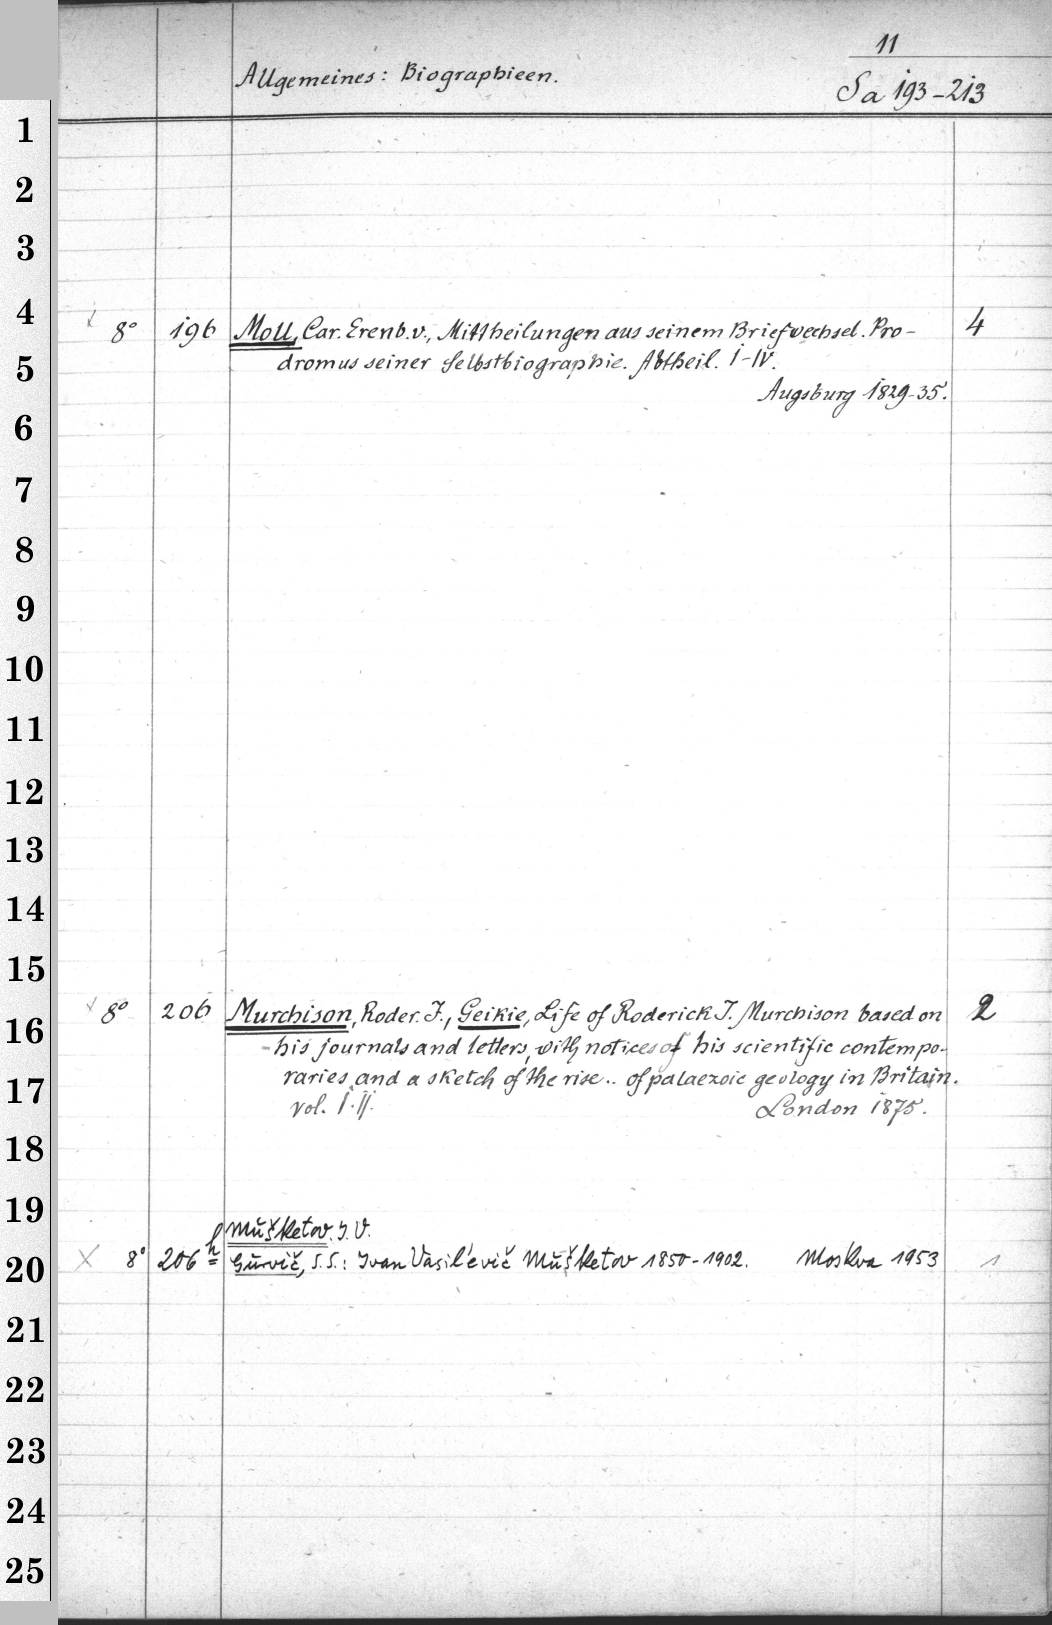 11
Allgemeines: Biographieen.
Sa 193-213
1
2
3
4
8° 196 Moll, Car. Erenb. v., Mittheilungen aus seinem Briefwechsel. Pro- 4
5
dromus seiner Selbstbiographie. Abtheil. I-IV.
Augsburg 1829-35.
6
7
8
9
10
11
12
13
14
15
8° 206 Murchison, Roder. I., Geikie, Life of Roderick I. Murchison based on 2
16
his journals and letters, with notices of his scientific contempo-
17
raries and a sketch of the rise .. of palaezoic geology in Britain.
vol. I. II. London 1875.
18
19
Mušketov. I. V.
20
8° 206 h Gurvič, S. S.: Ivan Vasil'evič Mušketov 1850-1902. Moskva 1953 1
21
22
23
24
25